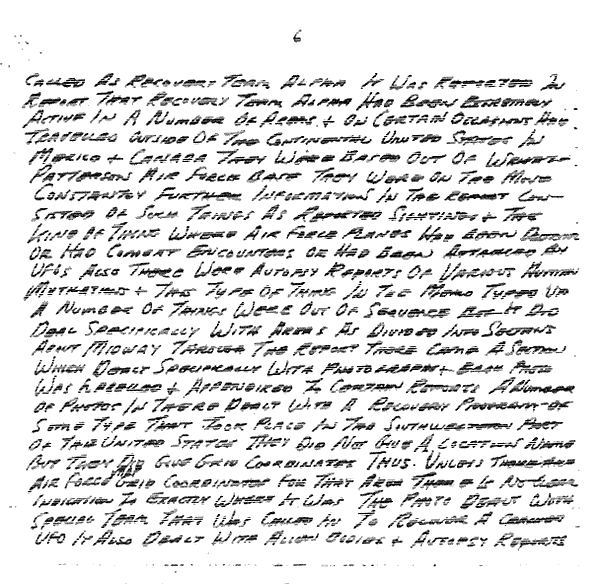 6
CALLED AS RECOVERY TEAM ALPHA IT WAS REPORTED IN
REPORT THAT RECOVERY TEAM ALPHA HAD BEEN EXTREMELY
ACTIVE IN A NUMBER OF AREAS + ON CERTAIN OCCASIONS HAD
TRAVELLED OUTSIDE OF THE CONTINENTAL UNITED STATES IN
MEXICO + CANADA THEY WERE BASED OUT OF WRIGHT-
PATTERSON AIR FORCE BASE THEY WERE ON THE MOVE
CONSTANTLY FURTHER INFORMATION IN THE REPORT CON-
SISTED OF SUCH THINGS AS REPORTED SIGHTINGS + THE
KIND OF THING WHERE AIR FORCE PLANES HAD BEEN
OR HAD COMBAT ENCOUNTERS OR HAD BEEN ATTACKED BY
UFOS ALSO THERE WERE AUTOPSY REPORTS OF VARIOUS HUMAN
MUTILATIONS + THIS TYPE OF THING IN THE MEMO TYPED UP
A NUMBER OF THINGS WERE OUT OF SEQUENCE BUT IT DID
DEAL SPECIFICALLY WITH AREAS AS DIVIDED INTO SECTIONS
ABOUT MIDWAY THROUGH THE REPORT THERE CAME A SECTION
WHICH DEALT SPECIFICALLY WITH PHOTOGRAPHS + EACH PHOTO
WAS LABELLED + APPENDIXED TO CERTAIN REPORTS A NUMBER
OF PHOTOS IN THERE DEALT WITH A RECOVERY PROGRAM OF
SOME TYPE THAT TOOK PLACE IN THE SOUTHWESTERN PART
OF THE UNITED STATES THEY DID NOT GIVE A LOCATION NAME
BUT THEY DID GIVE GRID COORDINATES THUS. UNLESS
AIR FORCE GRID COORDINATES FOR THAT AREA THERE IS NO CLEAR
INDICATION TO EXACTLY WHERE IT WAS THE PHOTO DEALT WITH
SPECIAL TEAM THAT WAS CALLED IN TO RECOVER A CRASHED
UFO IT ALSO DEALT WITH ALIEN BODIES + AUTOPSY REPORTS